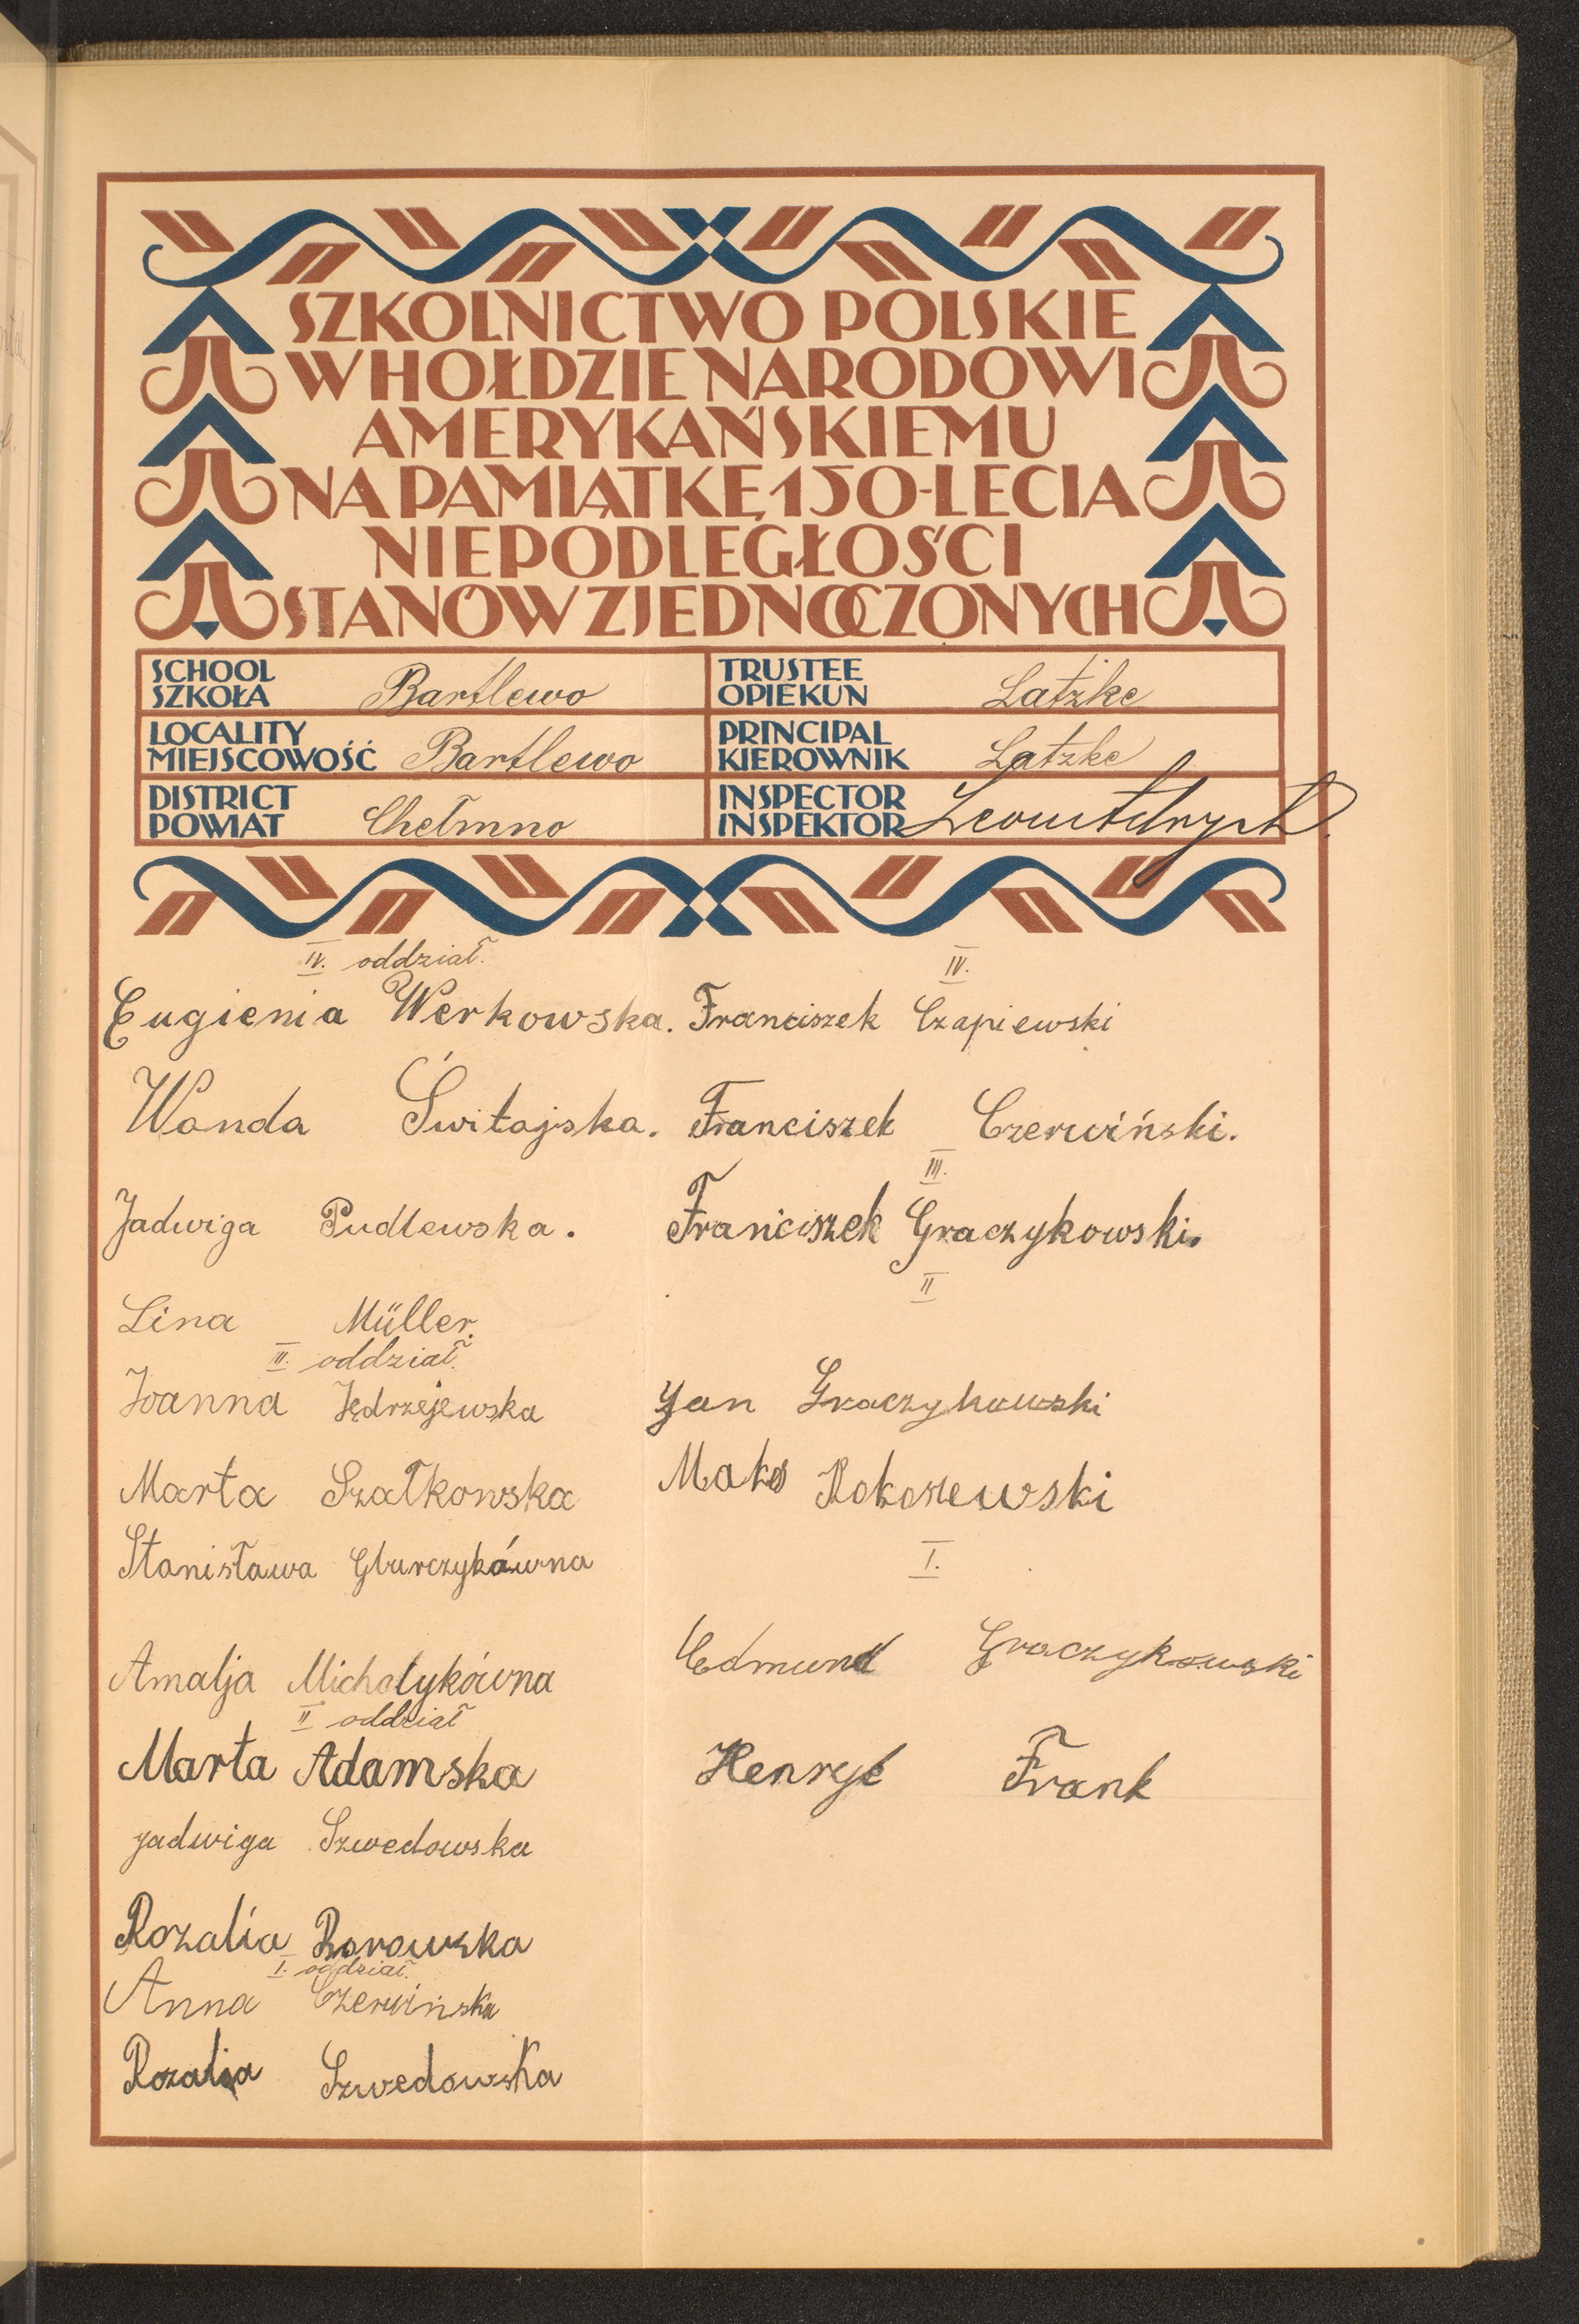 SZKOLNICTWO POLSKIE
W HOŁDZIE NARODOWI
AMERYKAŃSKIEMU
NA PAMIĄTKĘ 150-LECIA
NIEPODLEGŁOŚCI
STANÓW ZJEDNOCZONYCH
SCHOOL
SZKOŁA Bartlewo
TRUSTEE
OPIEKUN Latzke
LOCALITY
MIEJSCOWOŚĆ Bartlewo
PRINCIPAL
KIEROWNIK Latzke
DISTRICT
POWIAT Chełmno
INSPECTOR
INSPEKTOR
IV. oddział.
Eugienia Werkowska.
Wanda Świtajska.
Jadwiga Pudlewska.
Lina Müller.
III. oddział.
Joanna Jędrzejewska
Marta Szałkowska
Stanisława Gburczykówna
Amalja Michalykówna
II oddział
Marta Adamska
Jadwiga Szwedowska
Rozalia Borowska
I. oddział.
Anna Czerwińska
Rozalja Szwedowska
IV.
Franciszek Czapiewski
Franciszek Czerwiński.
III.
Franciszek Graczykowski.
II
Jan Graczykowski
Maks Rokoszewski
I.
Edmund Graczykowski
Henryk Frank